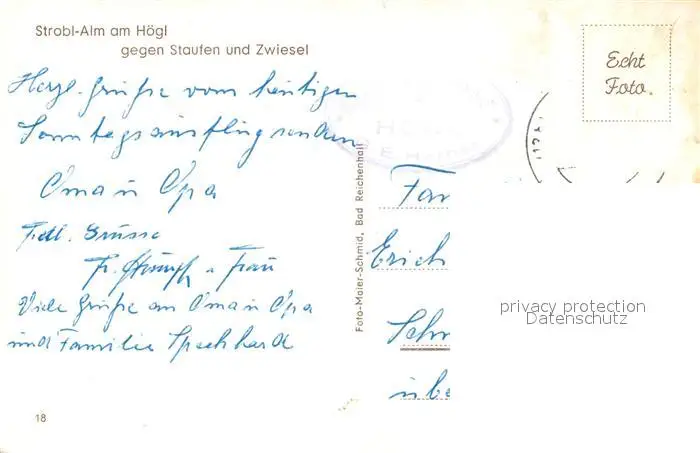 Strobl-Alm am Högl
gegen Staufen und Zwiesel
Herzl. Grüße vom heutigen
Sonntagsausflug senden
Oma u Opa
Frdl. Grüsse
Fr. u Frau
Viele Grüße an Oma u Opa
und Familie
18
Foto-Maier-Schmid, Bad Reichenhall
Echt
Foto.
Fam
Erich
Schn
in be
privacy protection
Datenschutz